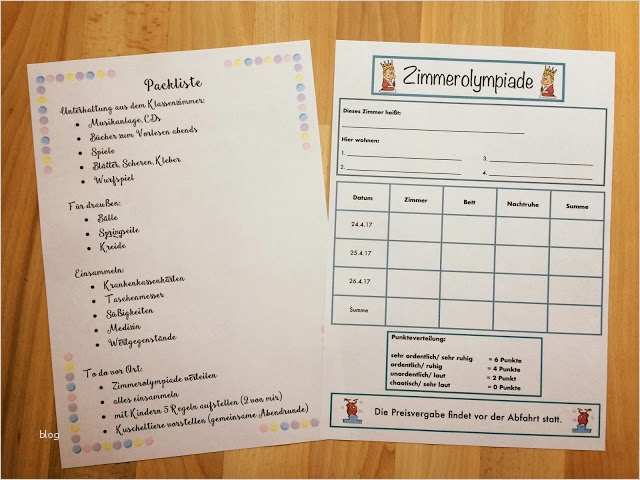 Packliste
Unterhaltung aus dem Klassenzimmer:
Musikanlage, CDs
Bücher zum Vorlesen abends
Spiele
Blätter, Scheren, Kleber
Wurfspiel
Für draußen:
Bälle
Springseile
Kreide
Einsammeln:
Krankenkassenkarten
Taschenmesser
Süßigkeiten
Medizin
Wertgegenstände
To do vor Ort:
Zimmerolympiade verteilen
alles einsammeln
mit Kindern 5 Regeln aufstellen (2 von mir)
Kuscheltiere vorstellen (gemeinsame Abendrunde)
Zimmerolympiade
Dieses Zimmer heißt:
Hier wohnen:
1. 3.
2. 4.
Datum Zimmer Bett Nachtruhe Summe
24.4.17
25.4.17
26.4.17
Summe
Punkteverteilung:
sehr ordentlich/ sehr ruhig = 6 Punkte
ordentlich/ ruhig = 4 Punkte
unordentlich/ laut = 2 Punkt
chaotisch/ sehr laut = 0 Punkte
Die Preisvergabe findet vor der Abfahrt statt.
blog